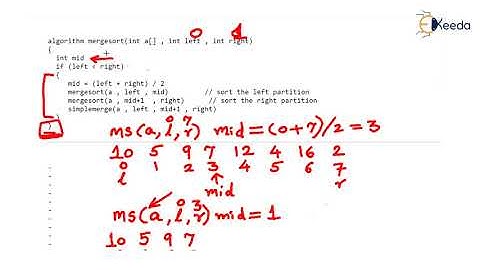 Ekeeda
0 1
algorithm mergesort(int a[] , int left , int right)
{
int mid
if (left < right)
{
mid = (left + right) / 2
mergesort(a , left , mid) // sort the left partition
mergesort(a , mid+1 , right) // sort the right partition
simplemerge(a , left , mid+1 , right)
}
}
0 7
ms(a, l, r) mid=(0+7)/2=3
10 5 9 7 12 4 16 2
0 1 2 3 4 5 6 7
l r
mid
0 3
ms(a, l, r) mid=1
10 5 9 7